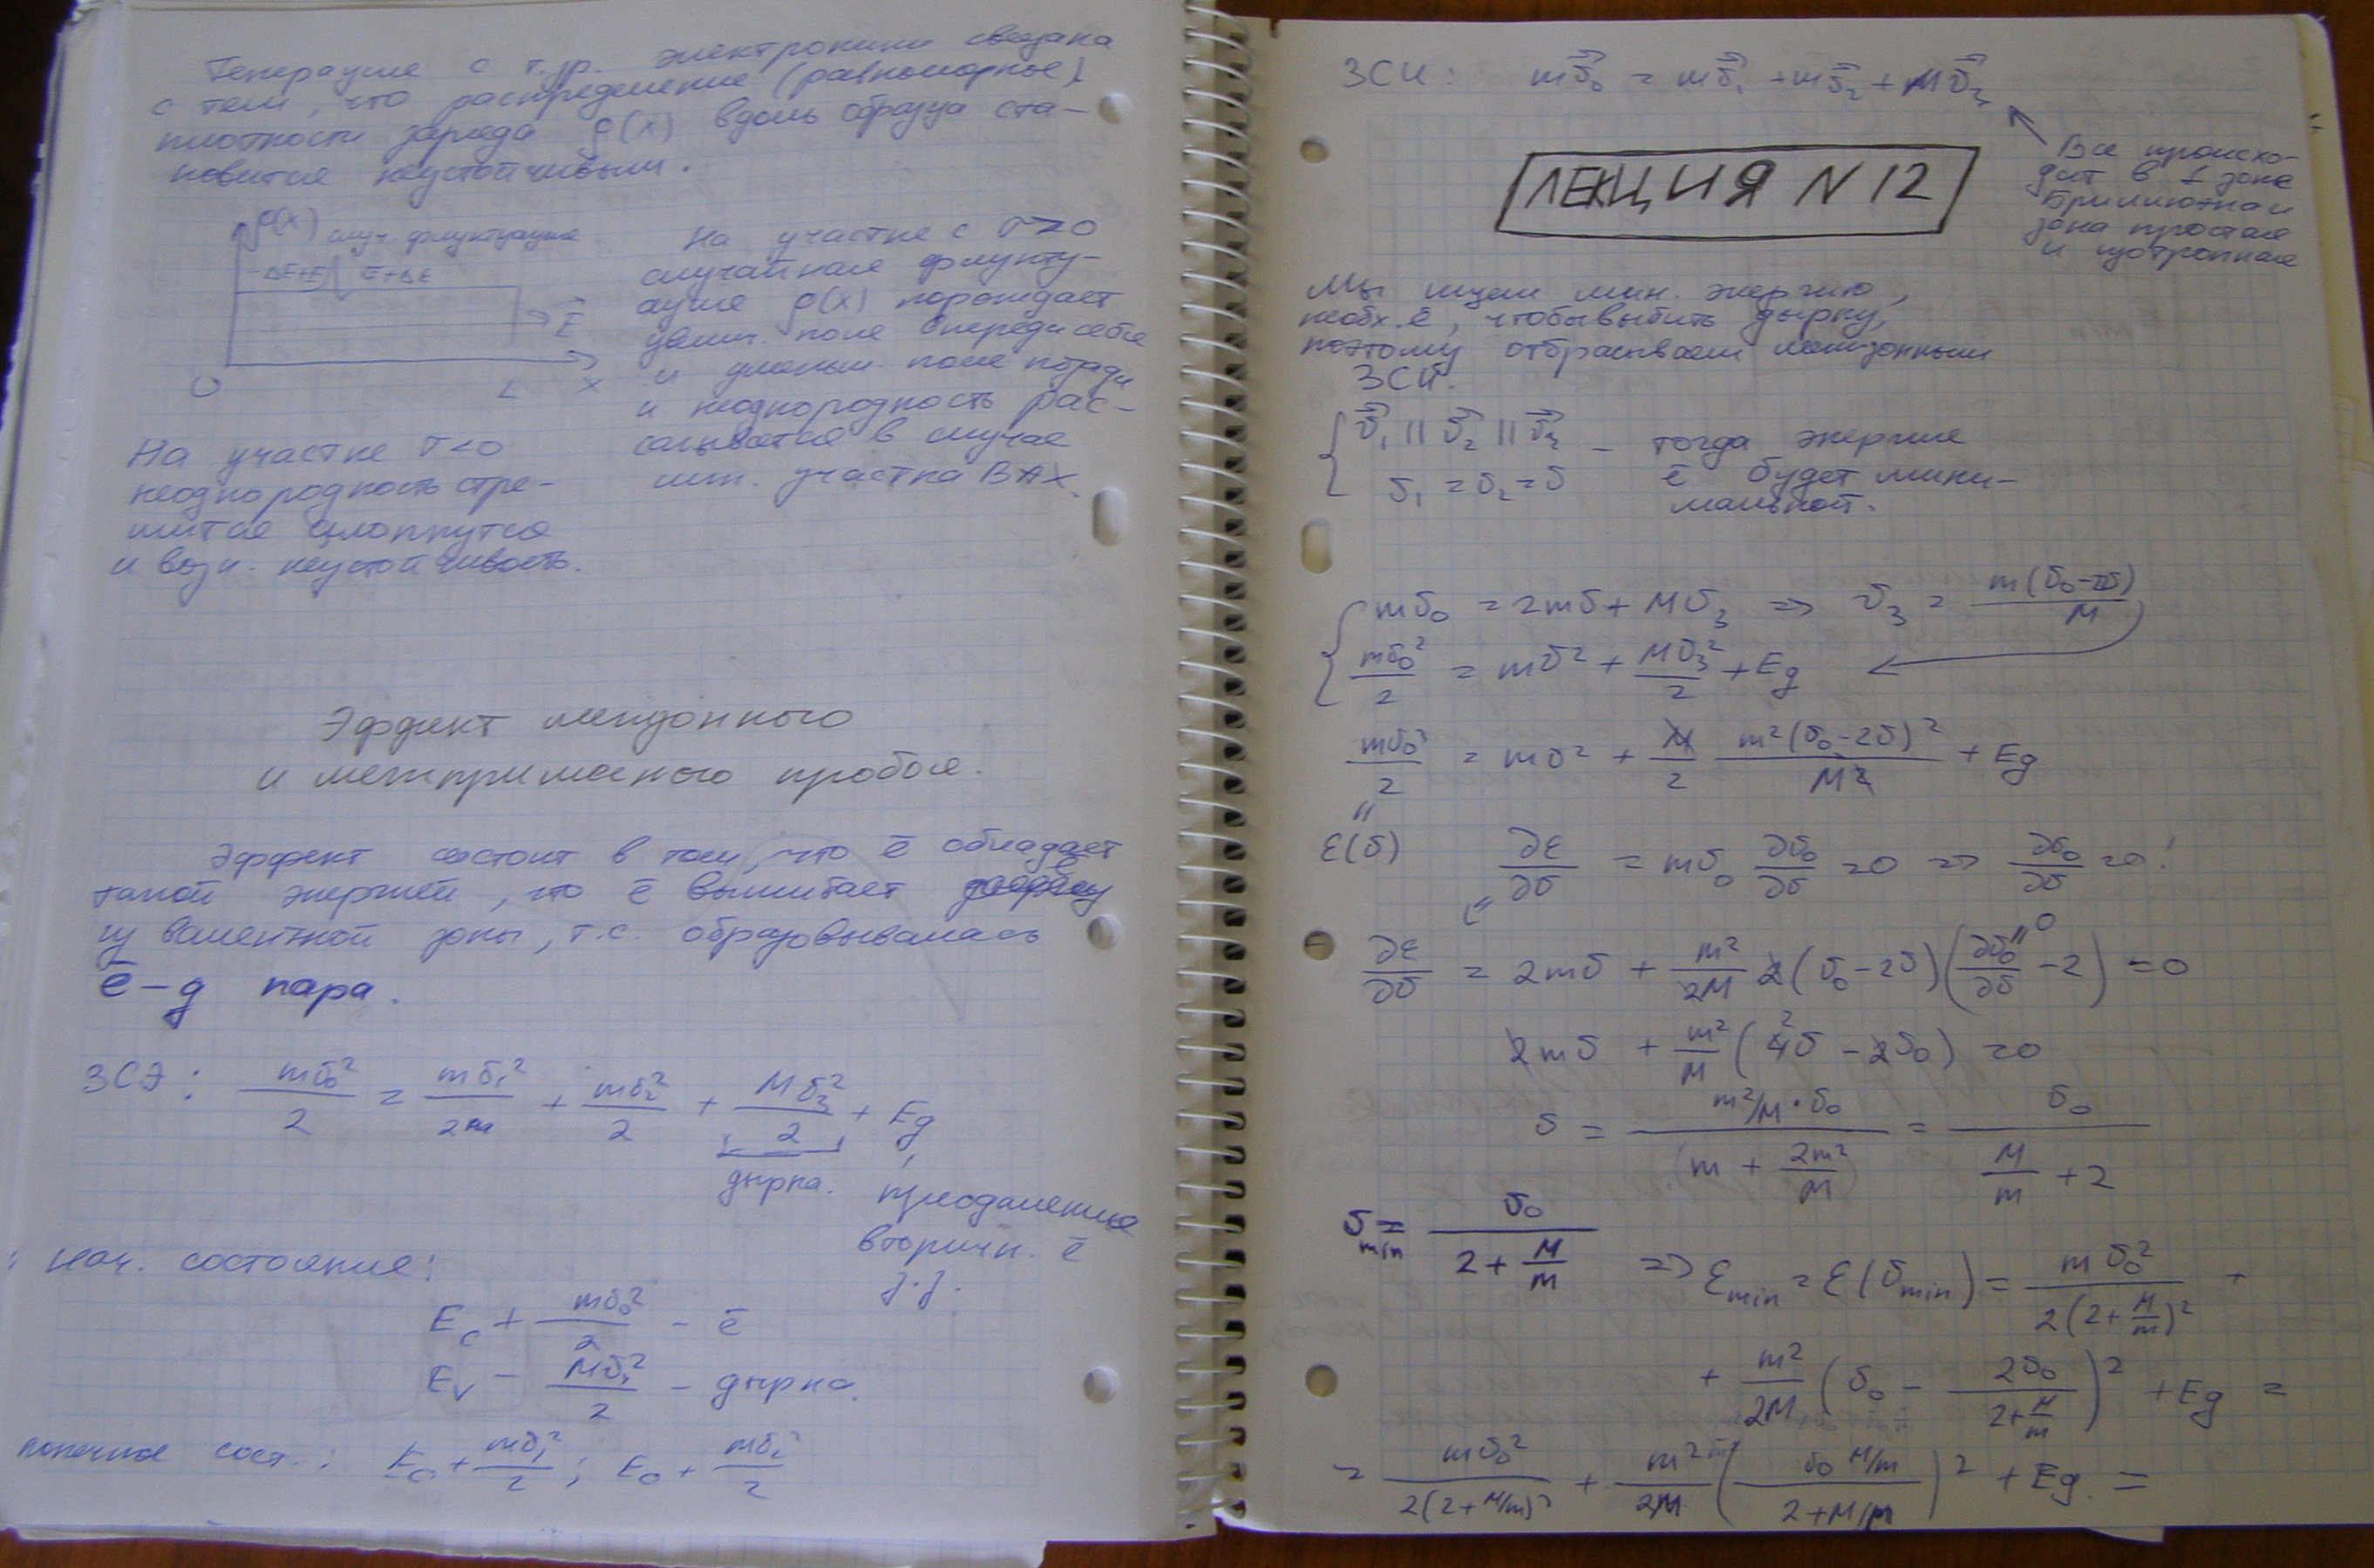 Генерация с т.зр. электроники связана
с тем, что распределение (равномерное)
плотности заряда ρ(x) вдоль образца ста-
новится неустойчивым.
ρ(x) случ. флуктуация
-ΔE+E E+ΔE
E⃗
0 L x
На участке с σ>0
случайная флукту-
ация ρ(x) порождает
увелич. поле впереди себя
и уменьш. поле позади
и неоднородность рас-
сасывается в случае
участка ВАХ.
На участке σ<0
неоднородность стре-
мится схлопнутся
и возн. неустойчивость.
Эффект межзонного
и межпримесного пробоя.
Эффект состоит в том, что ē обладает
такой энергией, что ē вышибает
из валентной зоны, т.е. образовывалась
ē-д пара.
ЗСЭ: mv₀²/2 = mv₁²/2 + mv₂²/2 + Mv₃²/2 + Eg
дырка.
вторичн. ē
з.з.
Нач. состояние:
E_c + mv₀²/2 - ē
E_v - Mv₁²/2 - дырка.
конечное сост.: E_c + mv₁²/2 ; E_c + mv₂²/2
ЗСИ: mv⃗₀ = mv⃗₁ + mv⃗₂ + Mv⃗₃
Все происхо-
дит в 1 зоне
Бриллюэна и
зона простая
и изотропная
ЛЕКЦИЯ N 12
Мы ищем мин. энергию,
необх. ē, чтобы выбить дырку,
поэтому отбрасываем
ЗСИ.
v⃗₁ || v⃗₂ || v⃗₃ - тогда энергия
v₁ = v₂ = v ē будет мини-
мальной.
mv₀ = 2mv + Mv₃ => v₃ = m(v₀-2v)/M
mv₀²/2 = mv² + Mv₃²/2 + Eg
mv₀²/2 = mv² + M/2 m²(v₀-2v)²/M² + Eg
"
ε(v) ∂ε/∂v = mv₀ ∂v₀/∂v = 0 => ∂v₀/∂v = 0!
∂ε/∂v = 2mv + m²/2M 2(v₀-2v)(∂v₀/∂v - 2) = 0
2mv + m²/M (4v - 2v₀) = 0
v = (m²/M · v₀)/(m + 2m²/M) = v₀/(M/m + 2)
v_min = v₀/(2 + M/m) => ε_min = ε(v_min) = mv₀²/2(2+M/m)² +
+ m²/2M (v₀ - 2v₀/(2+M/m))² + Eg =
= mv₀²/2(2+M/m)² + m²/2M (v₀ M/m/(2+M/m))² + Eg. =